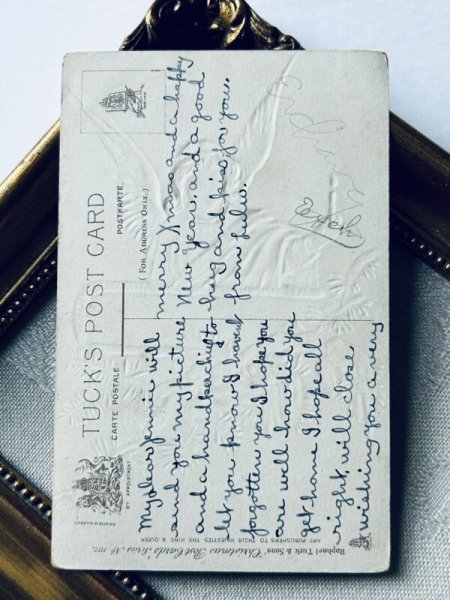 TUCK'S POST CARD
CARTE POSTALE.
POSTKARTE.
(FOR ADDRESS ONLY.)
BY APPOINTMENT
My dear Jennie will
send you my picture
and a to
let you know I havent
forgotten you I hope you
are well how did you
get home I hope all
right. will close
wishing you a very
merry Xmas and a happy
New Year and a good
hug and kiss for you.
from Lulu.
Raphael Tuck & Sons' "Christmas Post Cards" Series, No 102.
ART PUBLISHERS TO THEIR MAJESTIES THE KING & QUEEN